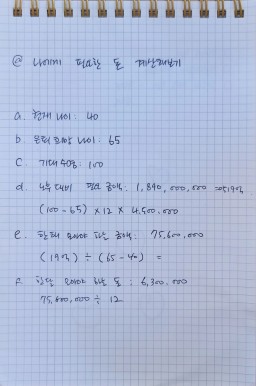 @ 나에게 필요한 돈 계산해보기
a. 현재 나이 : 40
b 은퇴 희망 나이 : 65
C. 기대수명 : 100
d. 노후 대비 필요 금액 : 1,890,000,000
(100-65) × 12 × 4,500,000
e. 한해 모아야 하는 금액 : 75,600,000
(19억) ÷ (65-40) =
모아야 하는 돈 : 6,300,000
75,600,000 ÷ 12